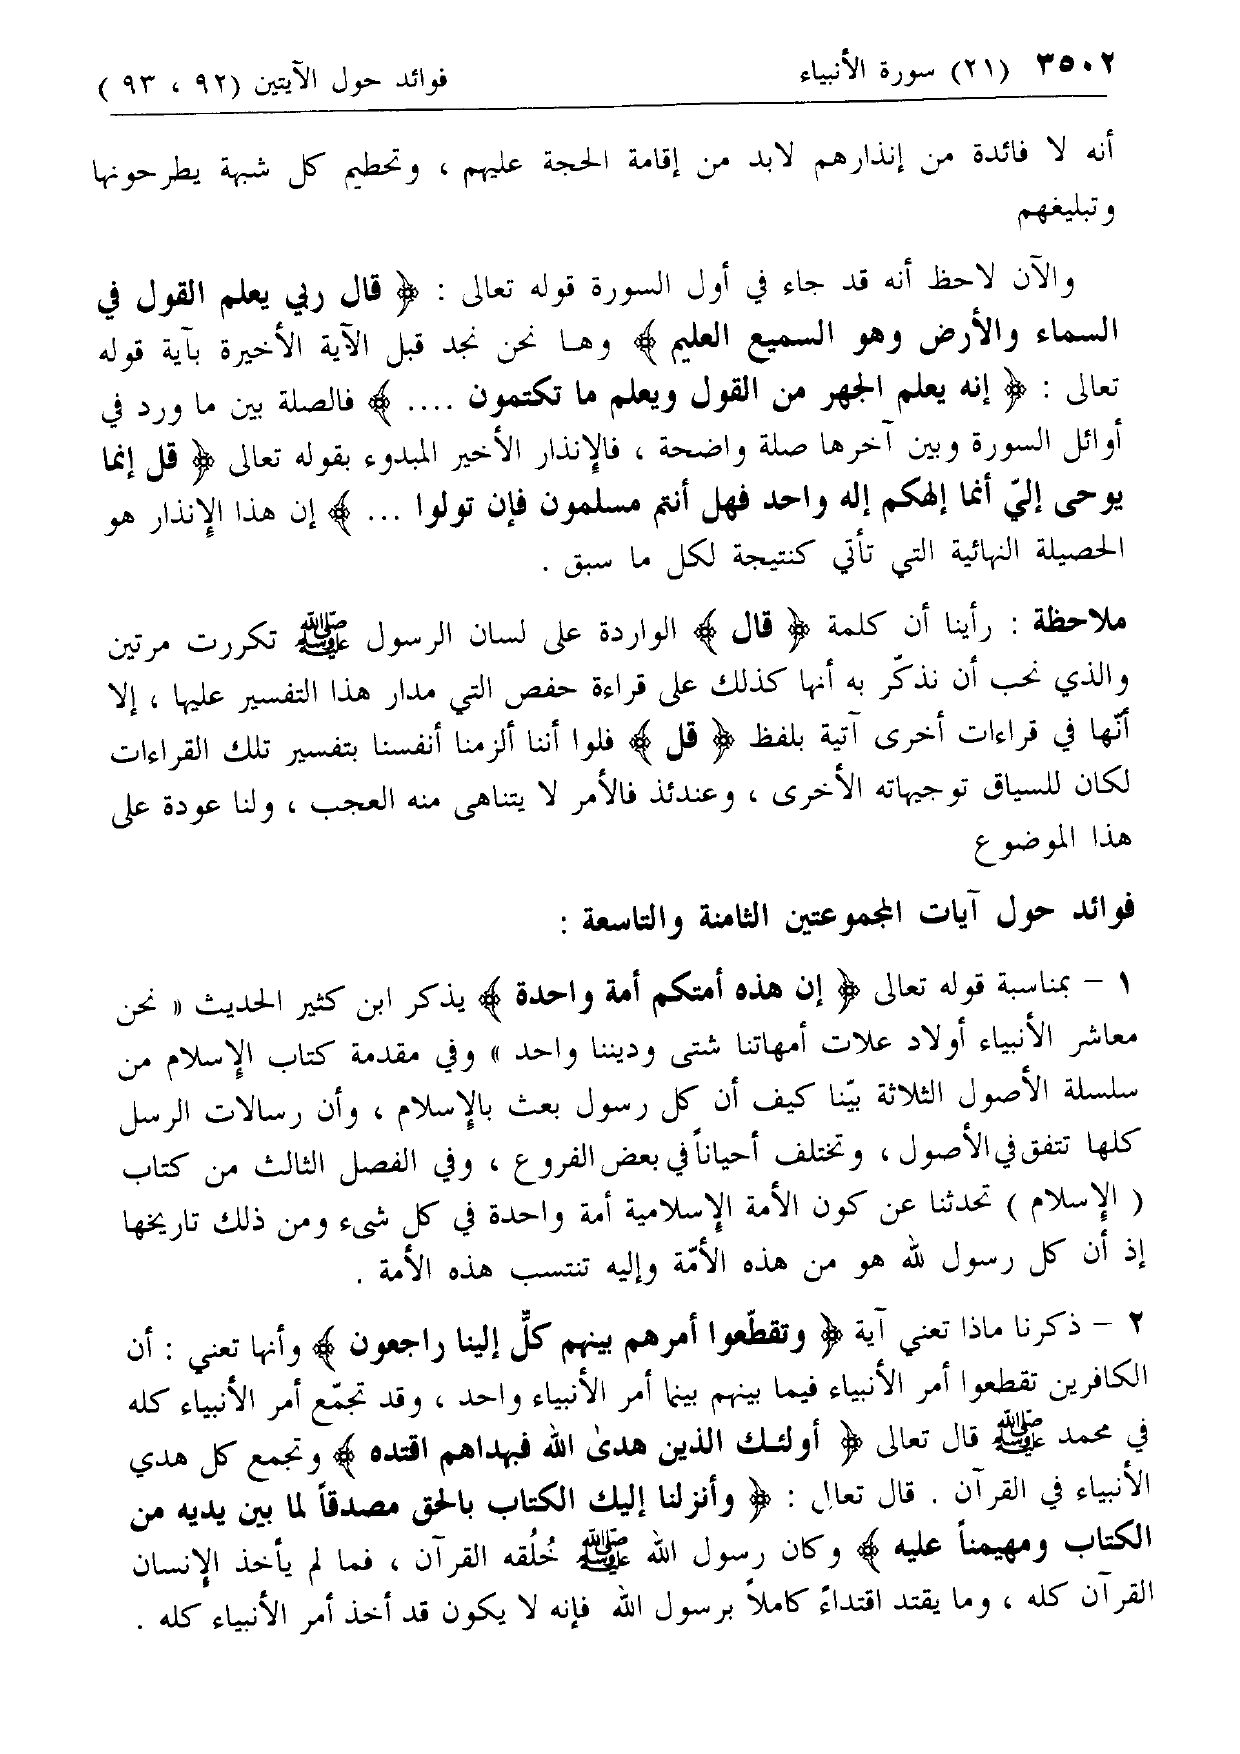 ٣٥٠٢ (٢١) سورة الأنبياء فوائد حول الآيتين (٩٢ ، ٩٣ )
أنه لا فائدة من إنذارهم لابد من إقامة الحجة عليهم ، وتحطيم كل شبهة يطرحونها
وتبليغهم
والآن لاحظ أنه قد جاء في أول السورة قوله تعالى : ﴿ قال ربي يعلم القول في
السماء والأرض وهو السميع العليم ﴾ وها نحن نجد قبل الآية الأخيرة بآية قوله
تعالى : ﴿ إنه يعلم الجهر من القول ويعلم ما تكتمون .... ﴾ فالصلة بين ما ورد في
أوائل السورة وبين آخرها صلة واضحة ، فالإنذار الأخير المبدوء بقوله تعالى ﴿ قل إنما
يوحى إليّ أنما إلهكم إله واحد فهل أنتم مسلمون فإن تولوا ... ﴾ إن هذا الإنذار هو
الحصيلة النهائية التي تأتي كنتيجة لكل ما سبق .
ملاحظة : رأينا أن كلمة ﴿ قال ﴾ الواردة على لسان الرسول ﷺ تكررت مرتين
والذي نحب أن نذكّر به أنها كذلك على قراءة حفص التي مدار هذا التفسير عليها ، إلا
أنّها في قراءات أخرى آتية بلفظ ﴿ قل ﴾ فلوا أننا ألزمنا أنفسنا بتفسير تلك القراءات
لكان للسياق توجيهاته الأخرى ، وعندئذ فالأمر لا يتناهى منه العجب ، ولنا عودة على
هذا الموضوع
فوائد حول آيات المجموعتين الثامنة والتاسعة :
١ – بمناسبة قوله تعالى ﴿ إن هذه أمتكم أمة واحدة ﴾ يذكر ابن كثير الحديث « نحن
معاشر الأنبياء أولاد علات أمهاتنا شتى وديننا واحد » وفي مقدمة كتاب الإسلام من
سلسلة الأصول الثلاثة بيّنا كيف أن كل رسول بعث بالإسلام ، وأن رسالات الرسل
كلها تتفق في الأصول ، وتختلف أحياناً في بعض الفروع ، وفي الفصل الثالث من كتاب
( الإسلام ) تحدثنا عن كون الأمة الإسلامية أمة واحدة في كل شىء ومن ذلك تاريخها
إذ أن كل رسول لله هو من هذه الأمّة وإليه تنتسب هذه الأمة .
٢ – ذكرنا ماذا تعني آية ﴿ وتقطّعوا أمرهم بينهم كلٌّ إلينا راجعون ﴾ وأنها تعني : أن
الكافرين تقطعوا أمر الأنبياء فيما بينهم بينما أمر الأنبياء واحد ، وقد تجمّع أمر الأنبياء كله
في محمد ﷺ قال تعالى ﴿ أولئك الذين هدىٰ الله فبهداهم اقتده ﴾ وتجمع كل هدي
الأنبياء في القرآن . قال تعالى : ﴿ وأنزلنا إليك الكتاب بالحق مصدقاً لما بين يديه من
الكتاب ومهيمناً عليه ﴾ وكان رسول الله ﷺ خُلُقه القرآن ، فما لم يأخذ الإنسان
القرآن كله ، وما يقتد اقتداءً كاملاً برسول الله فإنه لا يكون قد أخذ أمر الأنبياء كله .